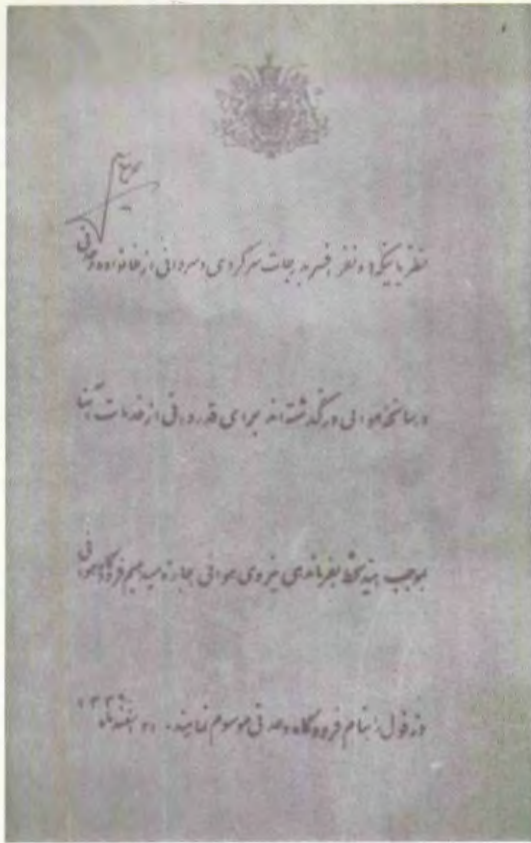 نظر باینکه دو نفر افسر بدرجات سرگردی و سروانی از خانواده وحدتی
در سانحه هوائی درگذشته‌اند برای قدردانی از خدمات آنها
بموجب این بفرماندهی نیروی هوائی اجازه میدهیم فرودگاه هوائی
دزفول بنام فرودگاه وحدتی موسوم نمایند. اسفندماه